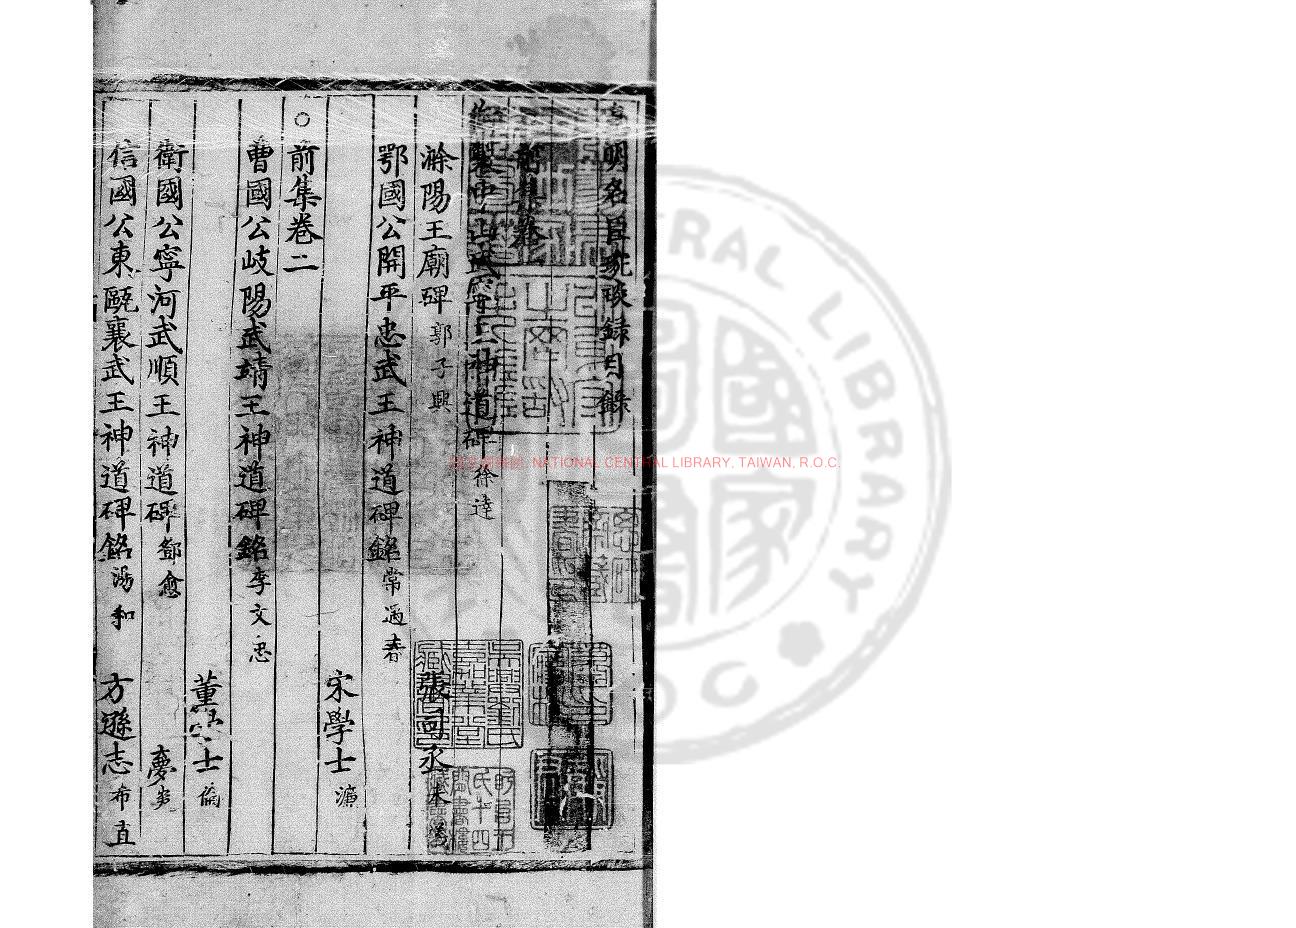 皇明名臣琬琰録目録
前集卷一
御製中山武寧王神道碑 徐達
滁陽王廟碑 郭子興 張司丞 來儀
鄂國公開平忠武王神道碑銘 常遇春
宋學士 濂
○前集卷二
曹國公岐陽武靖王神道碑銘 李文忠
董學士 倫
衛國公寧河武順王神道碑 鄧愈 夢炎
信國公東甌襄武王神道碑銘 湯和 方遜志 希直
吳興劉氏嘉業堂藏書記
NATIONAL CENTRAL LIBRARY, TAIWAN, R.O.C.